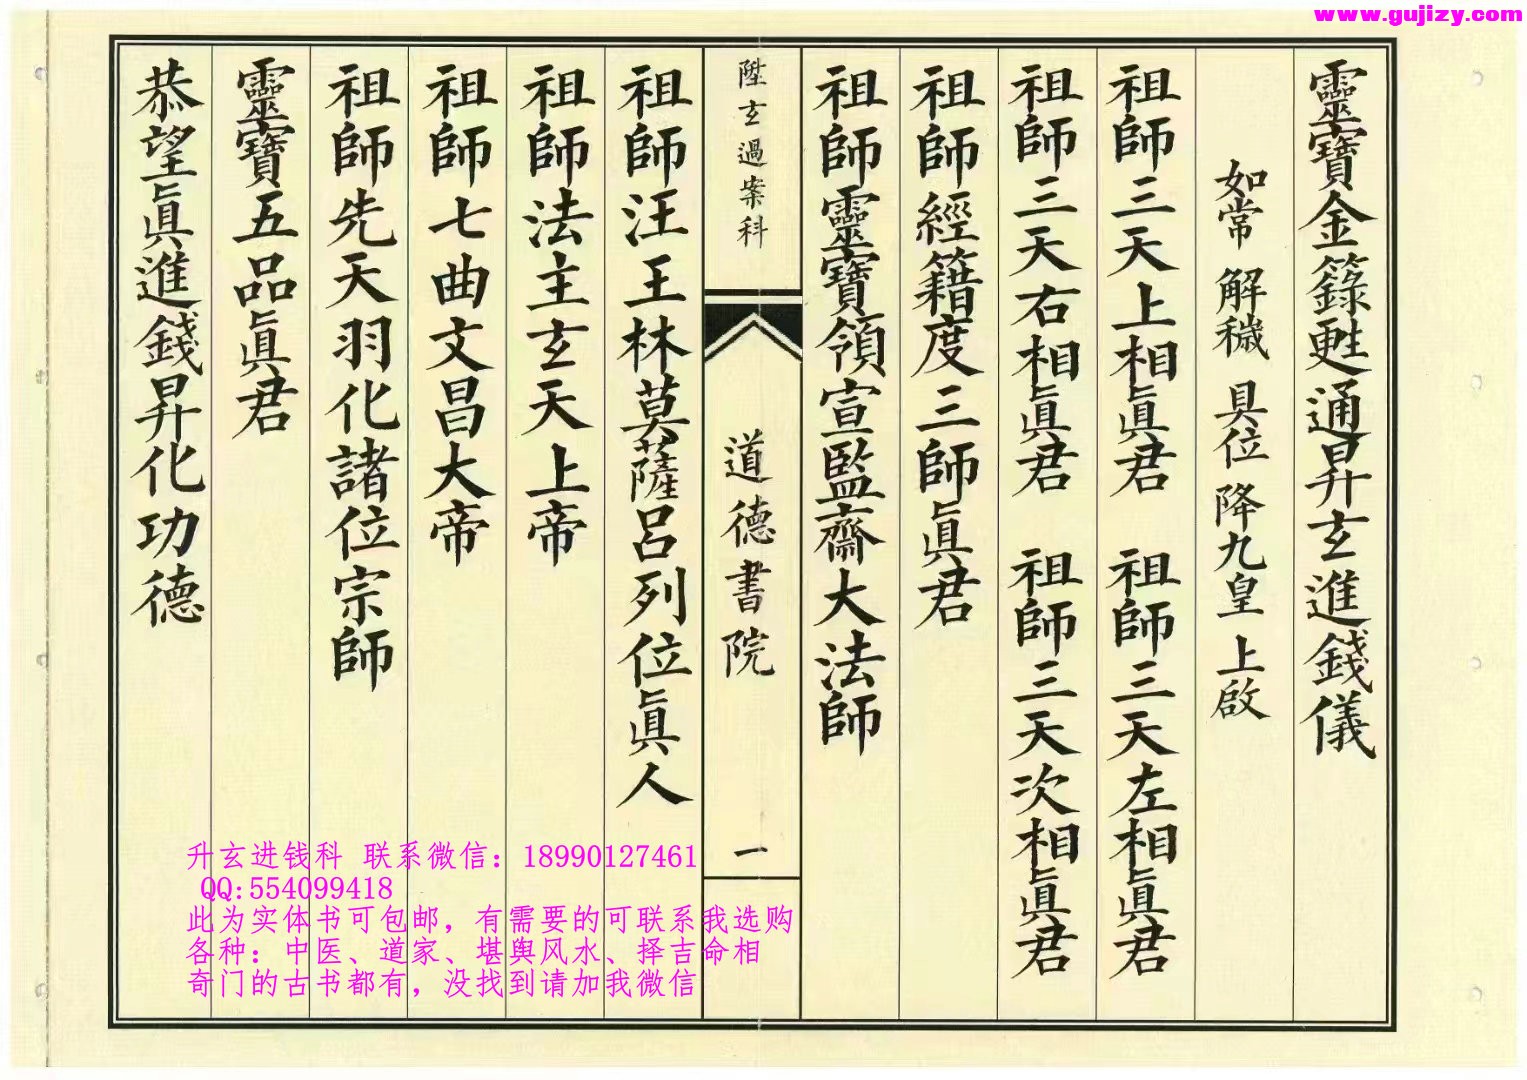 www.gujizy.com
靈寶金籙甦通昇玄進錢儀
如常 解穢 具位 降九皇 上啟
祖師三天上相眞君 祖師三天左相眞君
祖師三天右相眞君 祖師三天次相眞君
祖師經籍度三師眞君
祖師靈寶領宣監齋大法師
陞玄過案科
道德書院
一
祖師汪王林莫薩呂列位眞人
祖師法主玄天上帝
祖師七曲文昌大帝
祖師先天羽化諸位宗師
靈寶五品眞君
恭望眞進錢昇化功德
升玄进钱科 联系微信：18990127461
QQ:554099418
此为实体书可包邮，有需要的可联系我选购
各种：中医、道家、堪舆风水、择吉命相
奇门的古书都有，没找到请加我微信